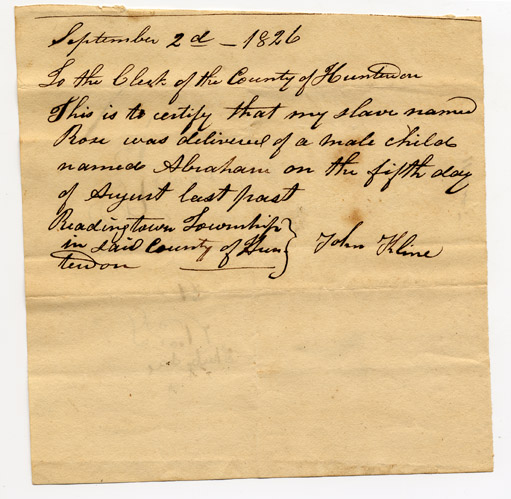 September 2d - 1826
To the Clerk of the County of Hunterdon
This is to certify that my slave named
Rose was delivered of a male child
named Abraham on the fifth day
of August last past
Readingtown Township
in said County of Hun
terdon
John Kline